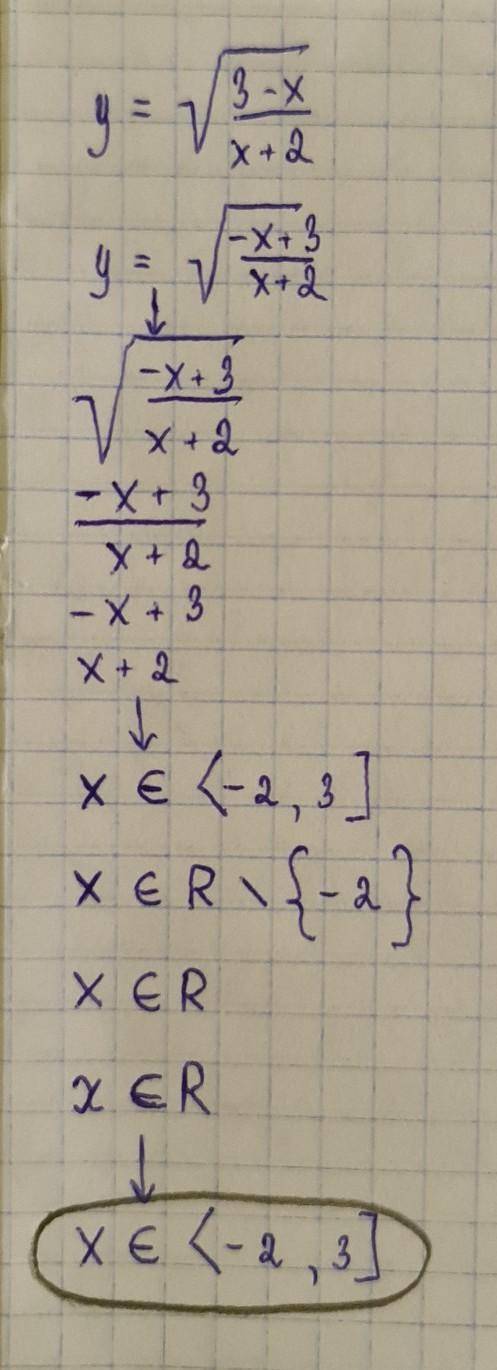 y = √((3-x)/(x+2))
y = √((-x+3)/(x+2))
↓
√((-x+3)/(x+2))
(-x+3)/(x+2)
-x+3
x+2
↓
x ∈ ⟨-2, 3]
x ∈ R \ {-2}
x ∈ R
x ∈ R
↓
x ∈ ⟨-2, 3]